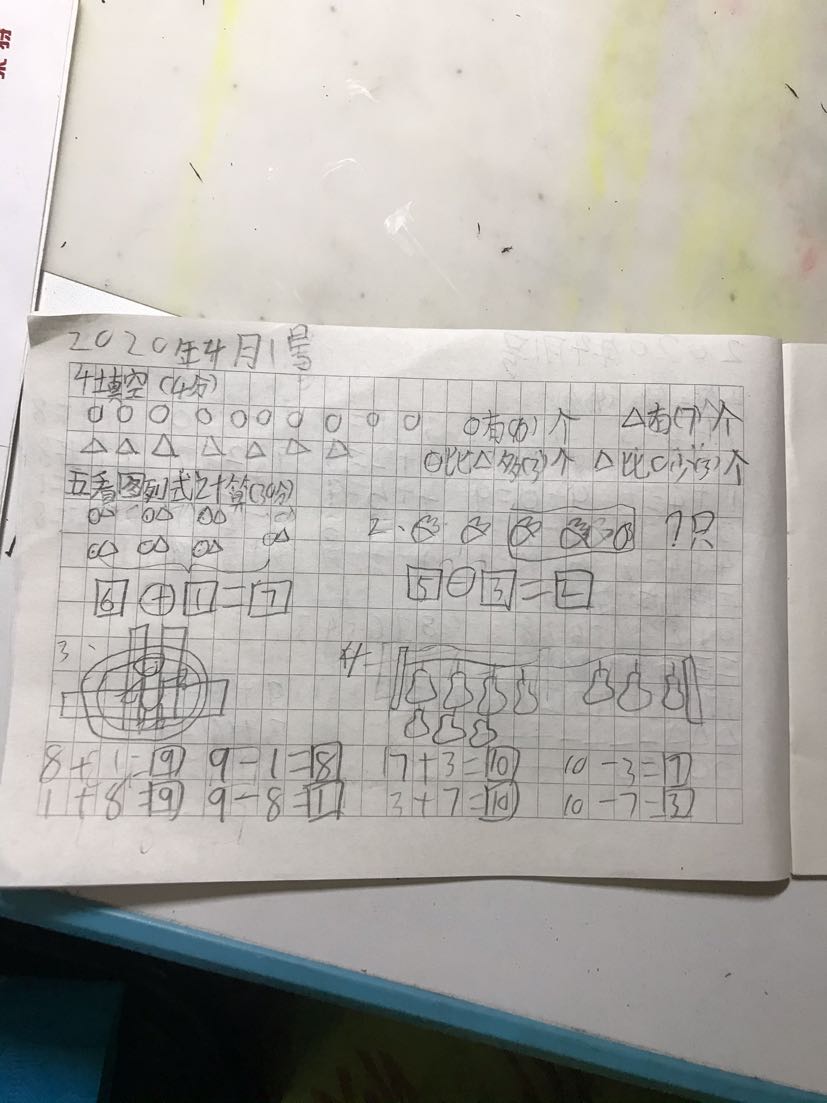 2020年4月1号
4填空(4分)
○○○○○○○○○○ ○有(10)个 △有(7)个
△△△△△△△ ○比△多(3)个 △比○少(3)个
五看图列式计算(30分)
2、 ?只
6+1=7 5-3=2
3、 4、
8+1=9 9-1=8 7+3=10 10-3=7
1+8=9 9-8=1 3+7=10 10-7=3